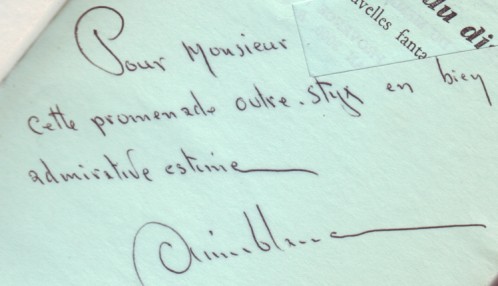 du di
velles fanta
Pour Monsieur
cette promenade outre-Styx en bien
admirative estime